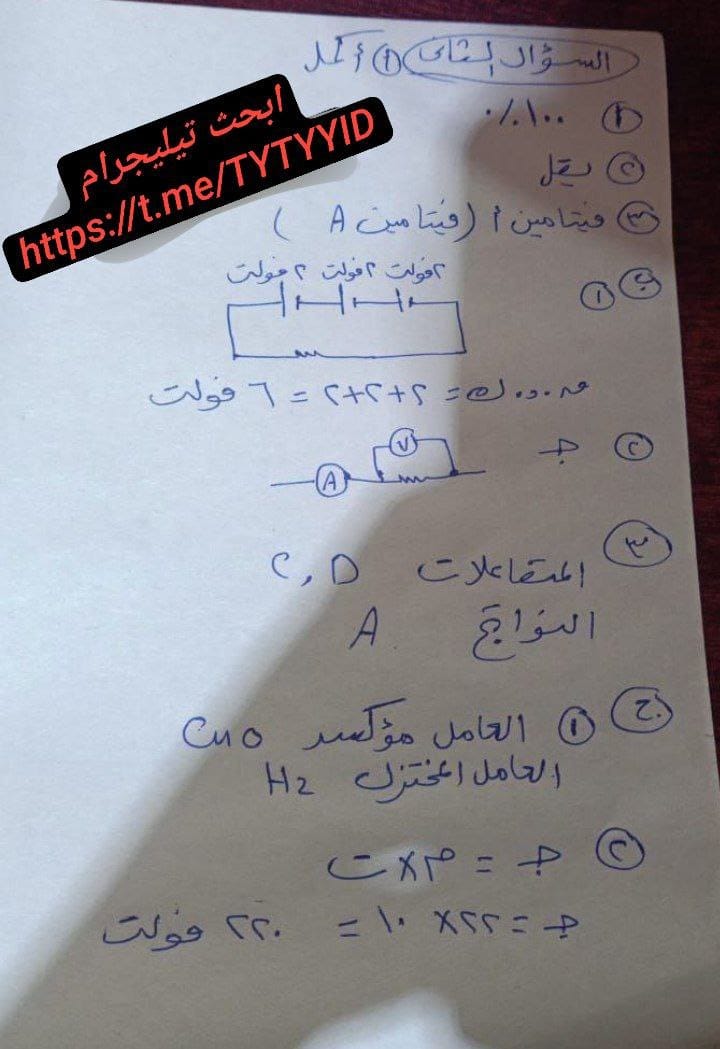 السؤال الثانى ① أكمل
① ١٠٠٪
② يقل
③ فيتامين أ (فيتامين A)
ابحث تيليجرام
https://t.me/TYTYYID
ب ①
٢ فولت ٢ فولت ٢ فولت
ق.د.ك = ٢+٢+٢ = ٦ فولت
② جـ
V
A
③ المتفاعلات C, D
النواتج A
ج ① العامل مؤكسد CuO
العامل المختزل H2
② جـ = م × ت
جـ = ٢٢ × ١٠ = ٢٢٠ فولت